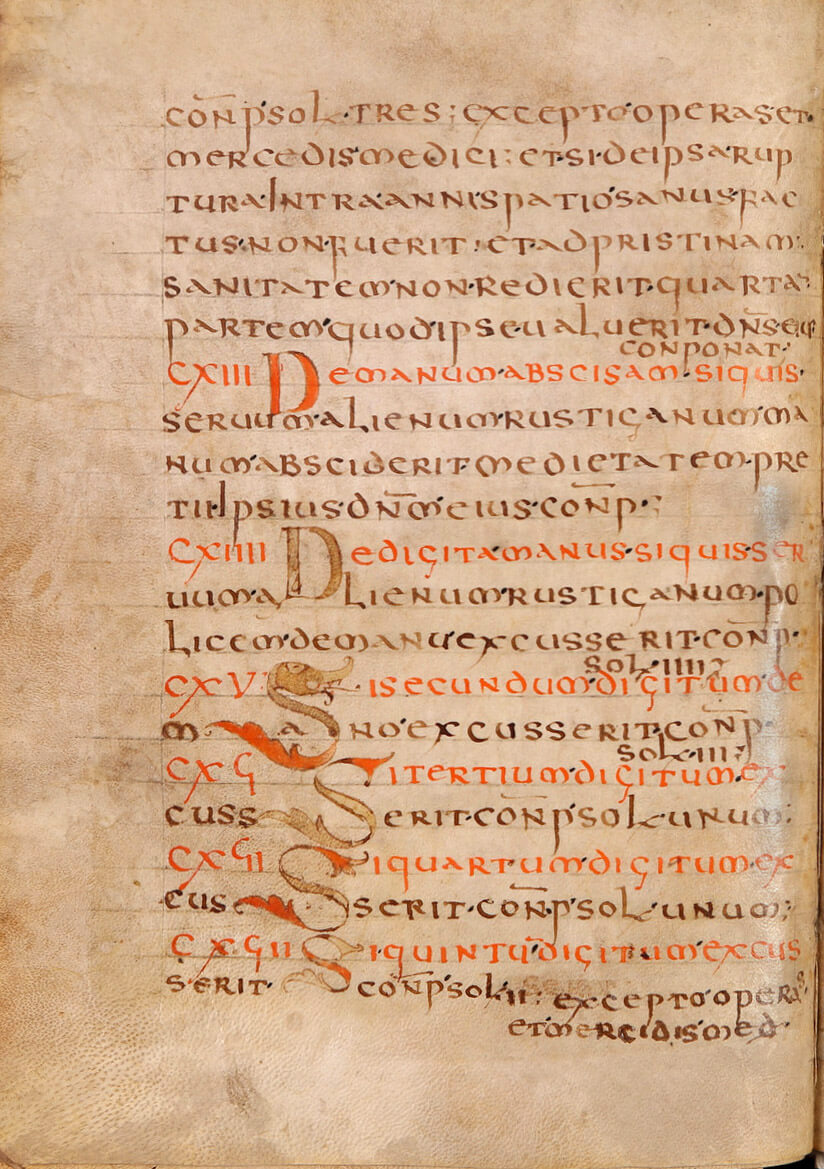 con̄p sol· tres; excepto operas et
mercedis medici; et si de ipsa rup
tura intra anni spatio sanus fac
tus non fuerit; et ad pristinam
sanitatem non redierit quarta
partem quod ipse ualuerit dn̄s eius
conponat·
CXIII De manum abscisam· si quis·
seruum alienum rusticanum ma
num absciderit medietatem pre
tii ipsius dn̄m eius con̄p·;
CXIIII De digita manus· si quis ser
uum alienum rusticanum po
licem de manu excusserit con̄p·
sol· IIII;
CXV Si secundum digitum de
mano excusserit con̄p
sol· III;
CXϚ Si tertium digitum ex
cusserit· con̄p sol· unum;
CXϚI Si quartum digitum ex
cusserit· con̄p sol· unum;
CXϚII Si quintū digitum excus
serit· con̄p sol· II; excepto operas
et mercidis med·